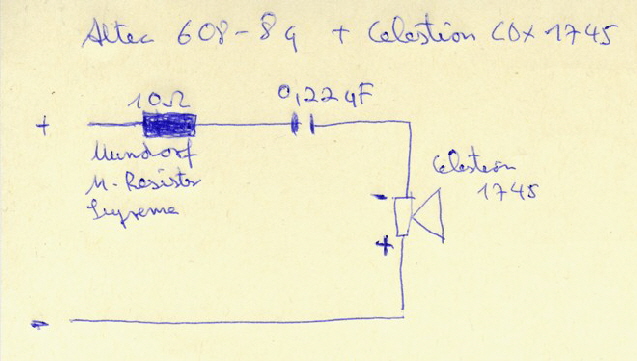 Altec 608-8g + Celestion CDX 1745
10Ω
0,22 µF
+
Mundorf
M-Resistor
Supreme
Celestion
1745
-
+
-